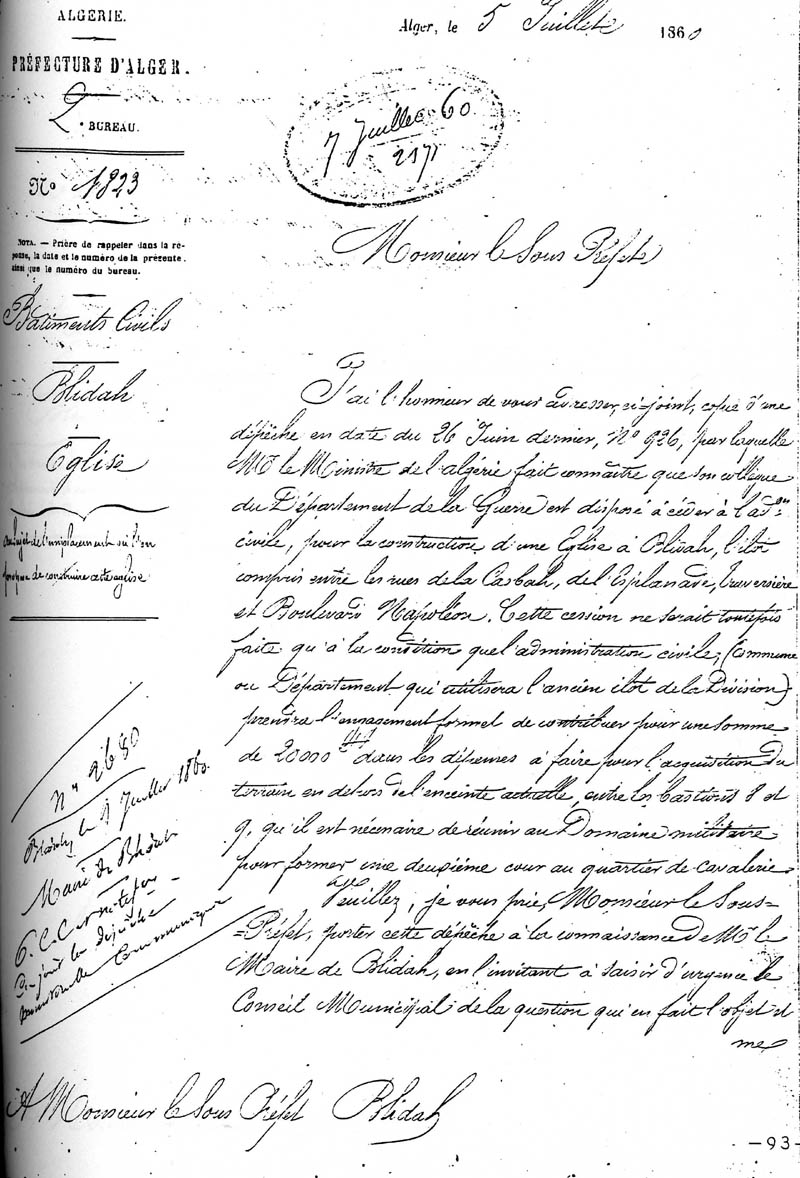 ALGÉRIE.
PRÉFECTURE D'ALGER.
2e BUREAU.
No 1823
NOTA. — Prière de rappeler dans la ré-
ponse, la date et le numéro de la présente.
ainsi que le numéro du bureau.
Bâtiments Civils
Blidah
Eglise
Au sujet de l'emplacement où l'on
propose de construire cette église
Alger, le 5 Juillet 1860
7 Juillet 60
2171
Monsieur le Sous Préfet
J'ai l'honneur de vous adresser, ci-joint, copie d'une
dépêche en date du 26 Juin dernier, No 926, par laquelle
Mr le Ministre de l'algérie fait connaître que son collègue
du Département de la Guerre est disposé à céder à l'adon
civile, pour la construction d'une Eglise à Blidah, l'ilot
compris entre les rues de la Casbah, de l'Esplanade, Traversière
et Boulevard Napoléon. Cette cession ne serait toutefois
faite qu'à la condition que l'administration civile, (Commune
ou Département qui utilisera l'ancien ilot de la Division)
prendra l'engagement formel de contribuer pour une somme
de 20000 f dans les dépenses à faire pour l'acquisition du
terrain en dehors de l'enceinte actuelle, entre les bastions 8 et
9, qu'il est nécessaire de réunir au Domaine militaire
pour former une deuxième cour au quartier de cavalerie.
Veuillez, je vous prie, Monsieur le Sous-
=Préfet, porter cette dépêche à la connaissance de Mr le
Maire de Blidah, en l'invitant à saisir d'urgence le
Conseil Municipal de la question qui en fait l'objet et
me
No 2680
Blidah le 9 Juillet 1860.
Maire de Blidah
ci-joint la dépêche
ministérielle
A Monsieur le Sous Préfet Blidah
—93—